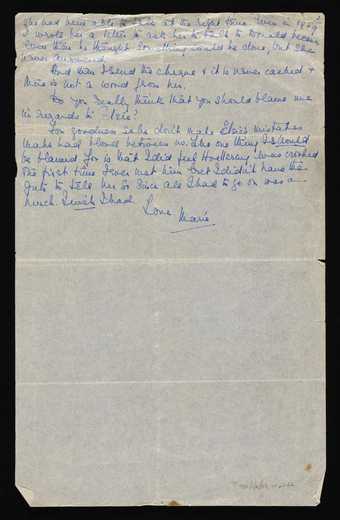 she had been able to this at the right time. Even in 1959
I wrote her a letter to ask her to talk to
even then he thought something could be done, but she
never answered.
And then I send the cheque & it is never cashed &
there is not a word from her.
Do you really think that you should blame me
in regards to Elsie?
For goodness sake don't make Elsie's mistakes
make bad blood between us. The one thing I should
be blamed for is that I did feel was crooked
the first time I ever met him but I didn't have the
guts to tell her so since all I had to go on was a
hunch. I wish I had.
Love
Marie